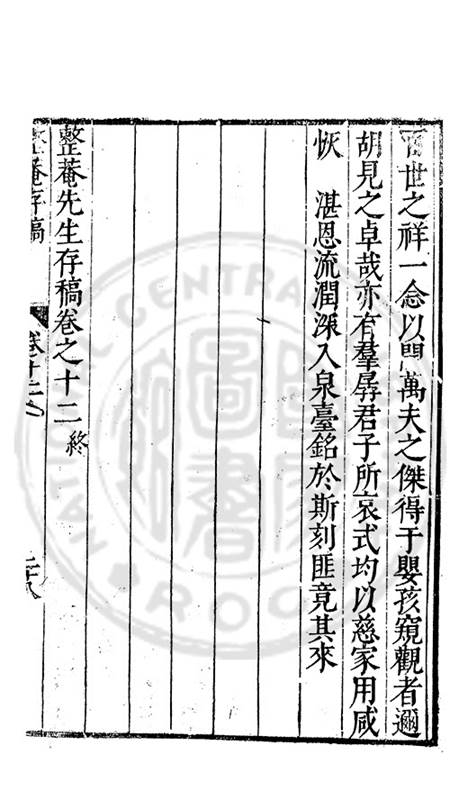 百世之祥一念以開萬夫之傑得于嬰孩窺觀者邇
胡見之卓哉亦有羣孱君子所哀式均以慈家用咸
恢　湛恩流潤深入泉臺銘於斯刻匪竟其來
整菴先生存稿卷之十二 終
整菴存稿
卷十二
二十八
NATIONAL CENTRAL LIBRARY
R.O.C.